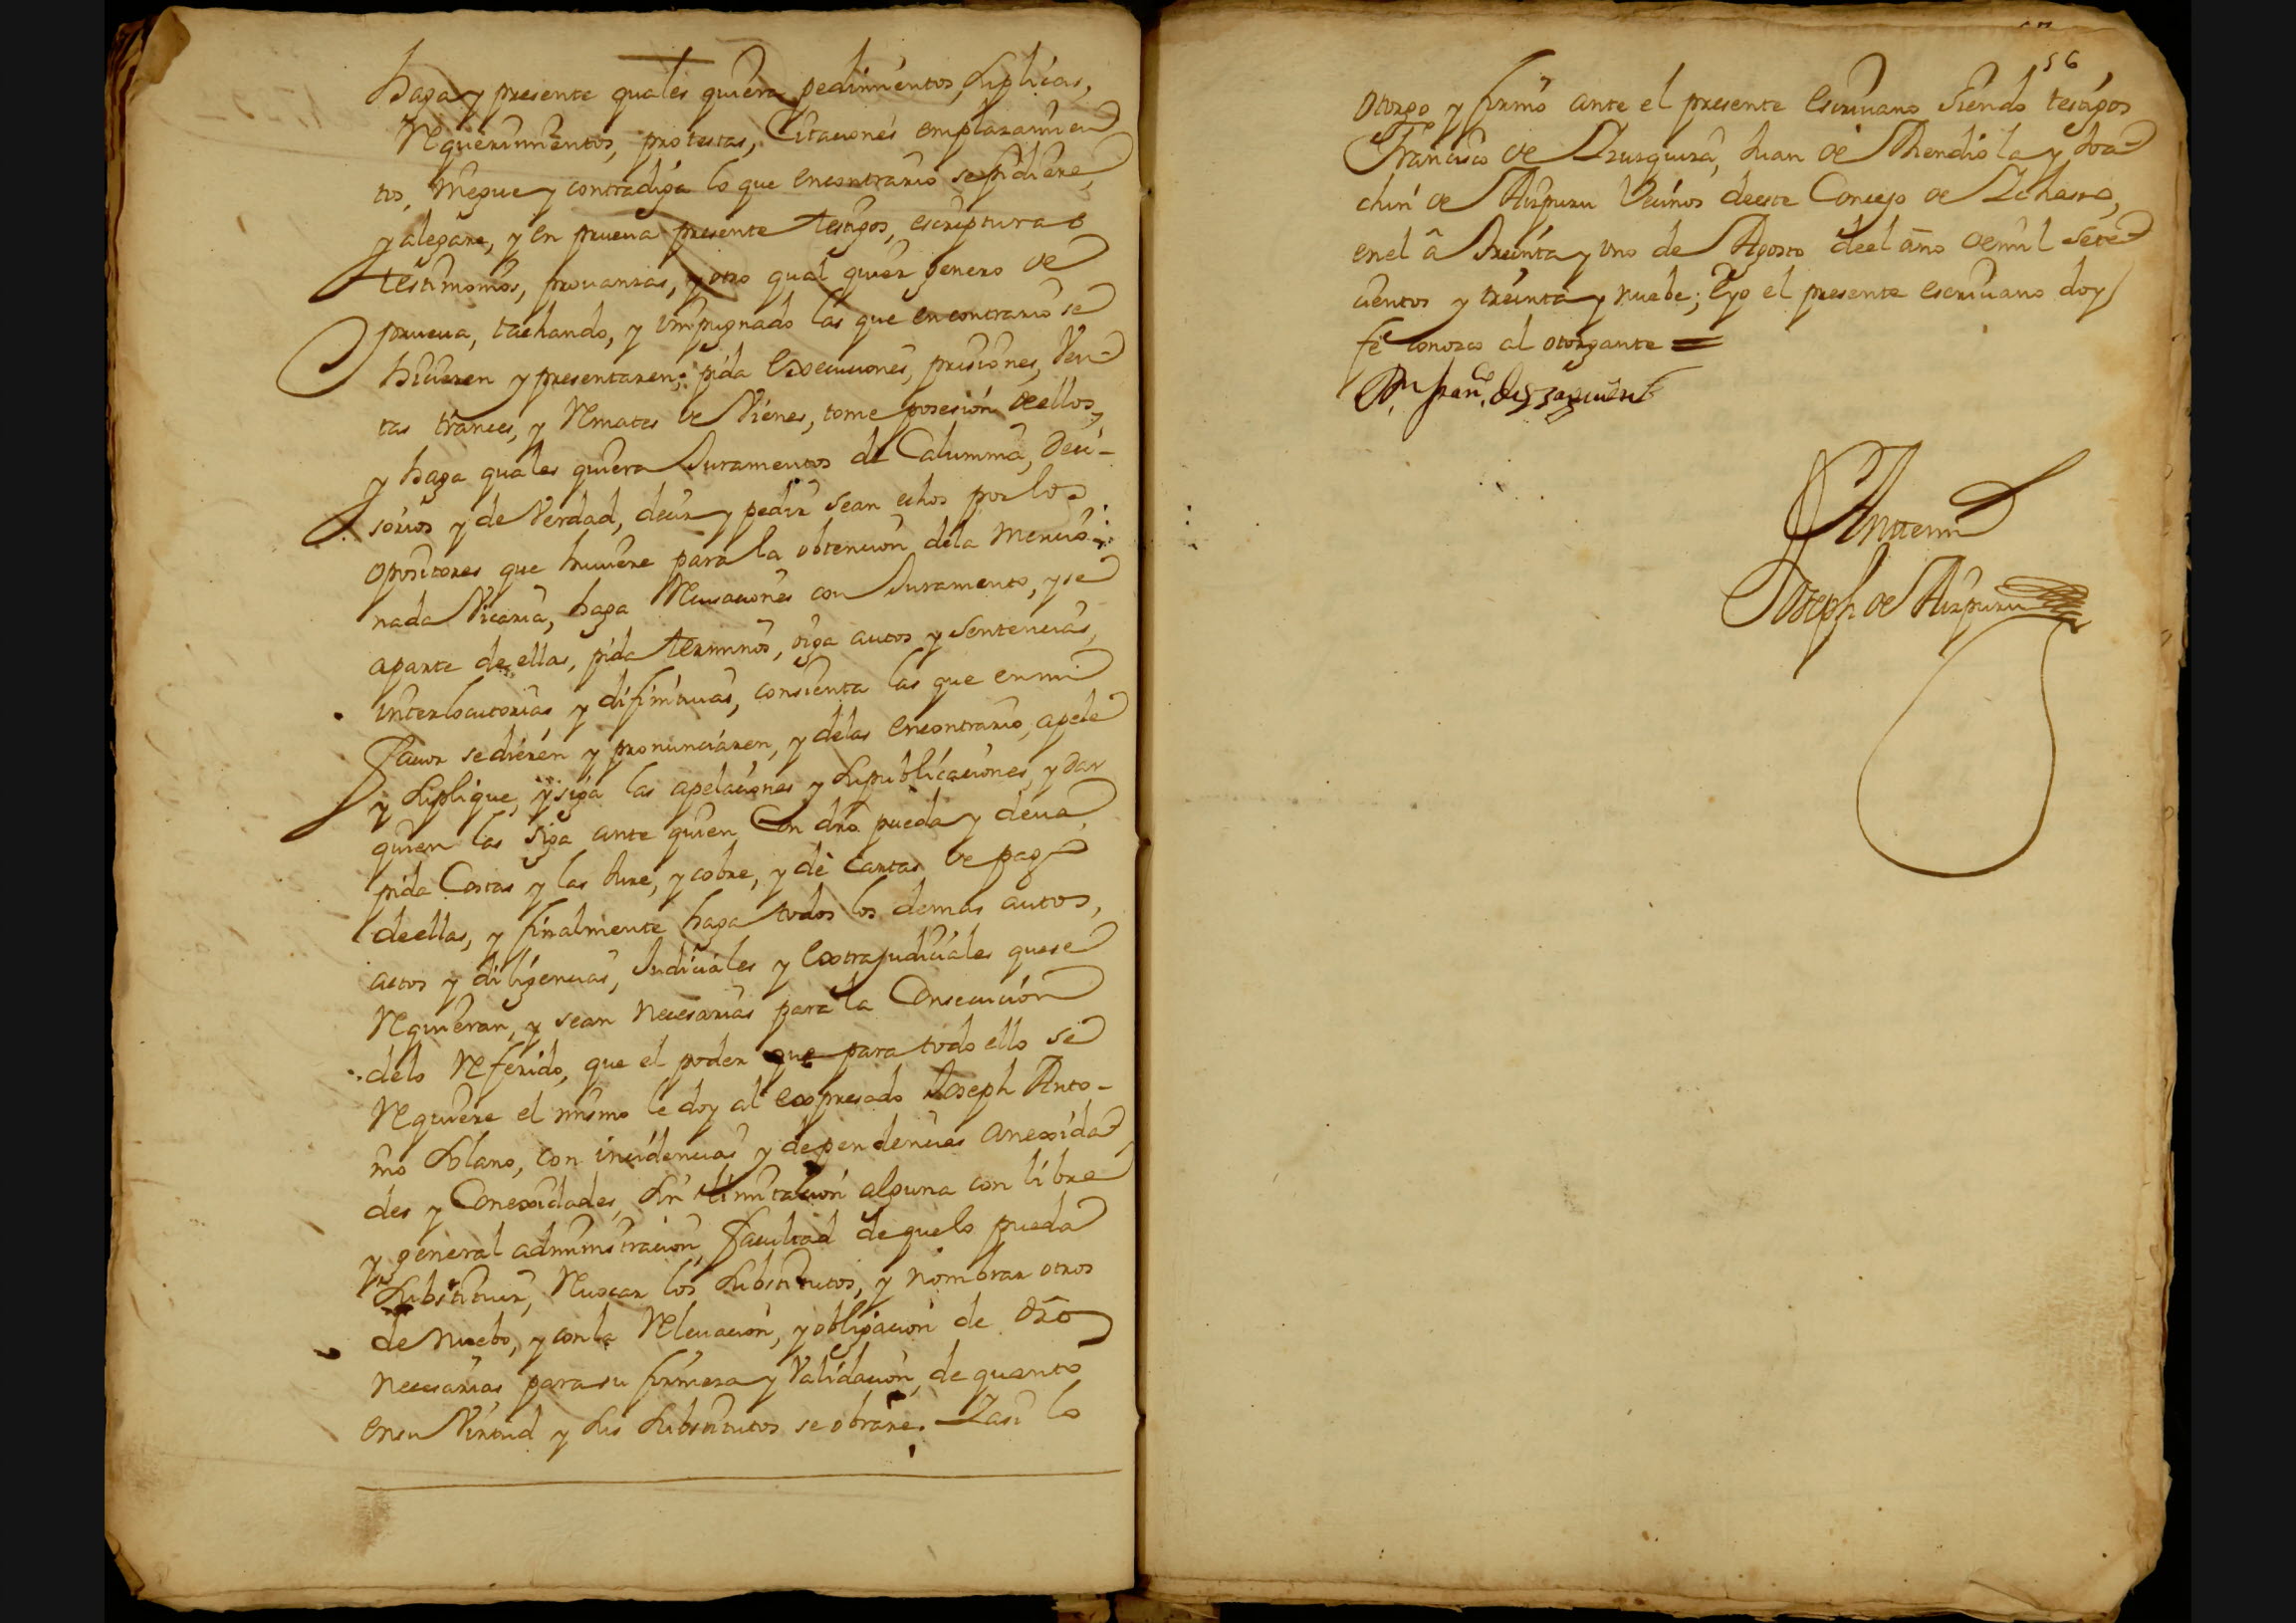 haga y presente quales quiera pedimientos, suplicas,
Requerimientos, protestas, Citaciones emplazamien
tos, niegue y contradiga lo que encontrario sepidiere,
y alegare, y en prueua presente testigos, escripturas
testimonios, prouanzas, y otro qual quier genero de
prueua, tachando, y impugnado las que encontrario se
hicieren y presentaren; pida Execuciones, prisiones, Ven
tas trances, y Remates de Vienes, tome posesión deellos,
y haga quales quiera Juramentos de Calumnia, deci-
sorios y de Verdad, decir y pedir sean echos por los
opositores que huuiere para la obtencion dela Mencio-
nada Vicaria, haga Recusaciones con Juramento, y se
aparte de ellas, pida terminos, oiga autos y Sentencias,
interlocutorias y difinitiuas, consienta las que en mi
fauor se dieren y pronunciaren, y delas encontrario, apele
y suplique, y siga las apelaciones y supublicaciones, y dar
quien las siga ante quien Con dro. pueda y deua,
pida Costas y las Jure, y cobre, y dé Cartas de pago
deellas, y finalmente haga todos los demas autos,
actos y diligencias, Judiciales y Extrajudiciales quese
Requieran, y sean necesarias para la Consecución
delo Referido, que el poder que para todo ello se
Requiere el mismo le doy al expresado Joseph Anto-
nio Solano, con incidencias y dependencias anexida
des y Conexidades, sin limitación alguna con libre
y general administracion, facultad de quelo pueda
substituir, Reuocar los substitutos, y nombrar otros
de nuebo, y con la Releuación, y obligacion de dro
necesarias para su firmeza y Validacion, de quanto
ensu Virtud y sus substitutos se obrare. Y asi lo
56
otorgo y firmo ante el presente escriuano siendo testigos
Francisco de Yrusquiza, Juan de Mendiola y Joa
chin de Aizpuru Vecinos deeste Concejo de Ychaso,
en el â treinta y uno de Agosto deel año de mil sete
cientos y treinta y nuebe; e yo el presente escriuano doy
fe conozco al otorgante =
Dn. Fran.co de
Antemi
Joseph de Aizpuru